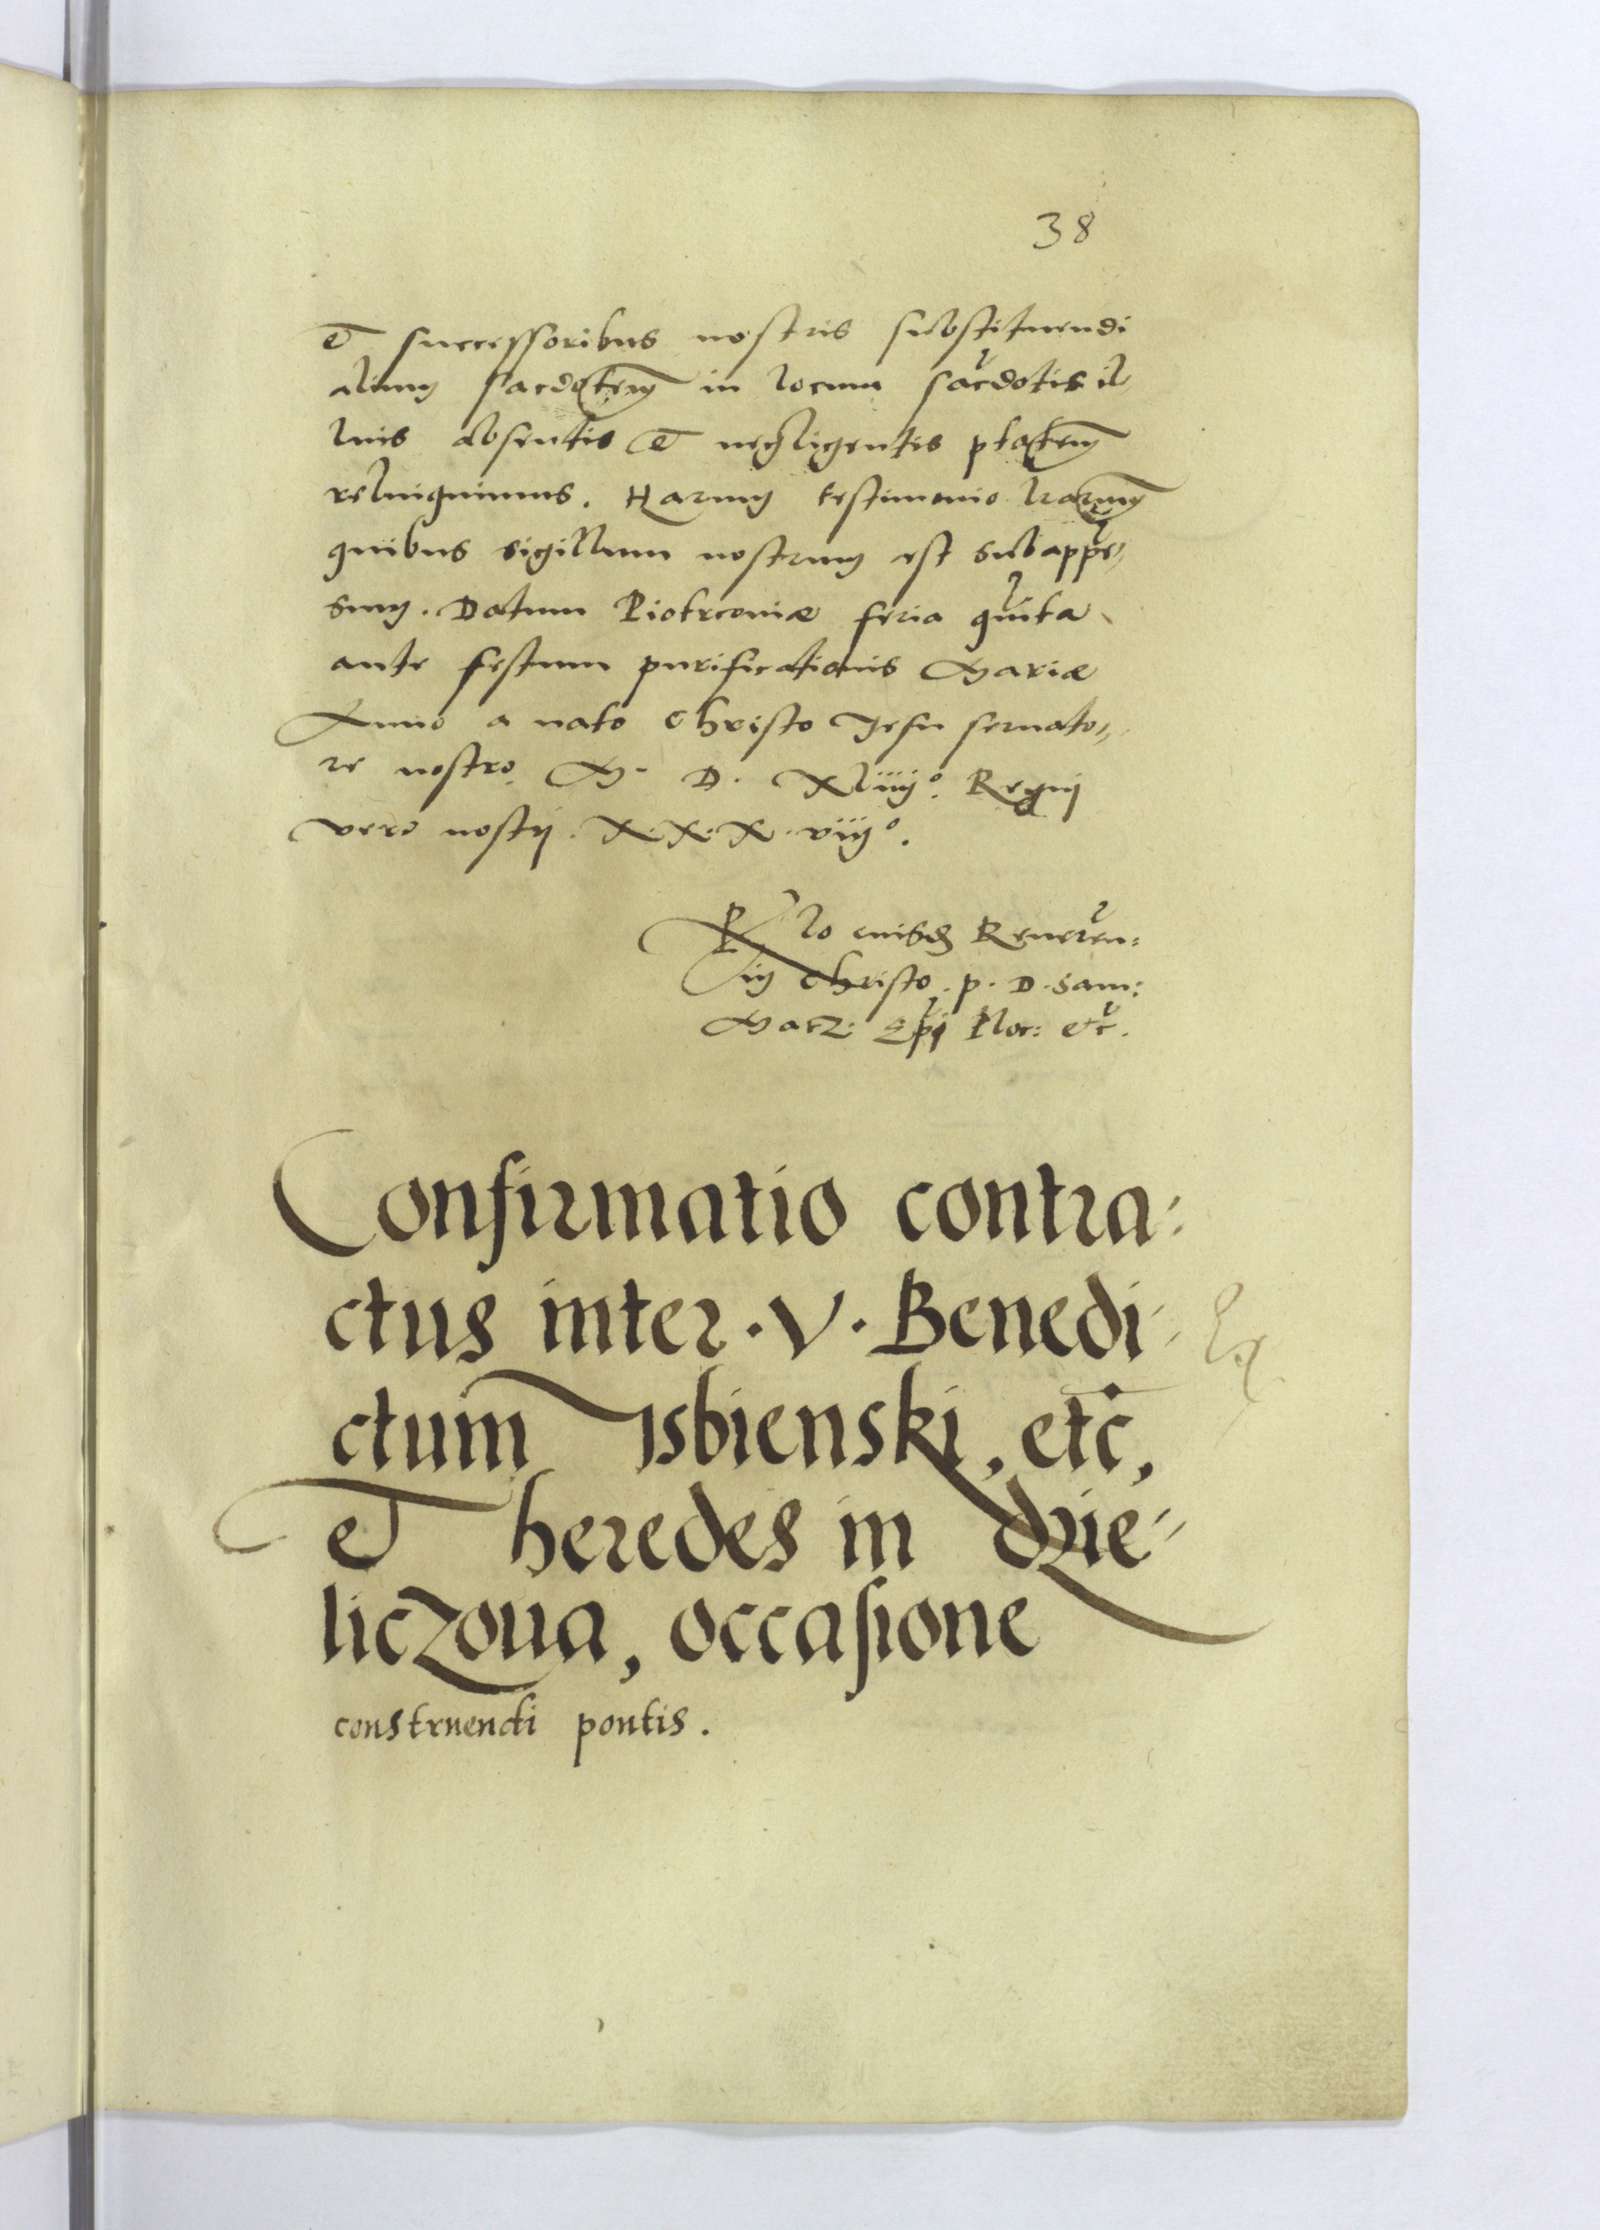 38
et successoribus nostris substituendi
alium sacdotem in locum sacdotis il-
lius absentis et negligentis ptatem
relinquimus. Harum testimonio lrarum
quibus sigillum nostrum est subappe-
sum. Datum Piotrconiæ feria quinta
ante festum purificationis Mariæ
Anno a nato Christo Iesu servato-
re nostro. M. D. XLiiij°. Regnj
vero nostrj. X.X.X.viij°.
R'lo eiusdem Reveren:
in Christo. p. D. Sam:
Macz: Epi Ploc: etc.
Confirmatio contra-
ctus inter . V . Benedi-
ctum Isbienski, etc,
et heredes in dzie-
liczoua, occasione
construendi pontis.